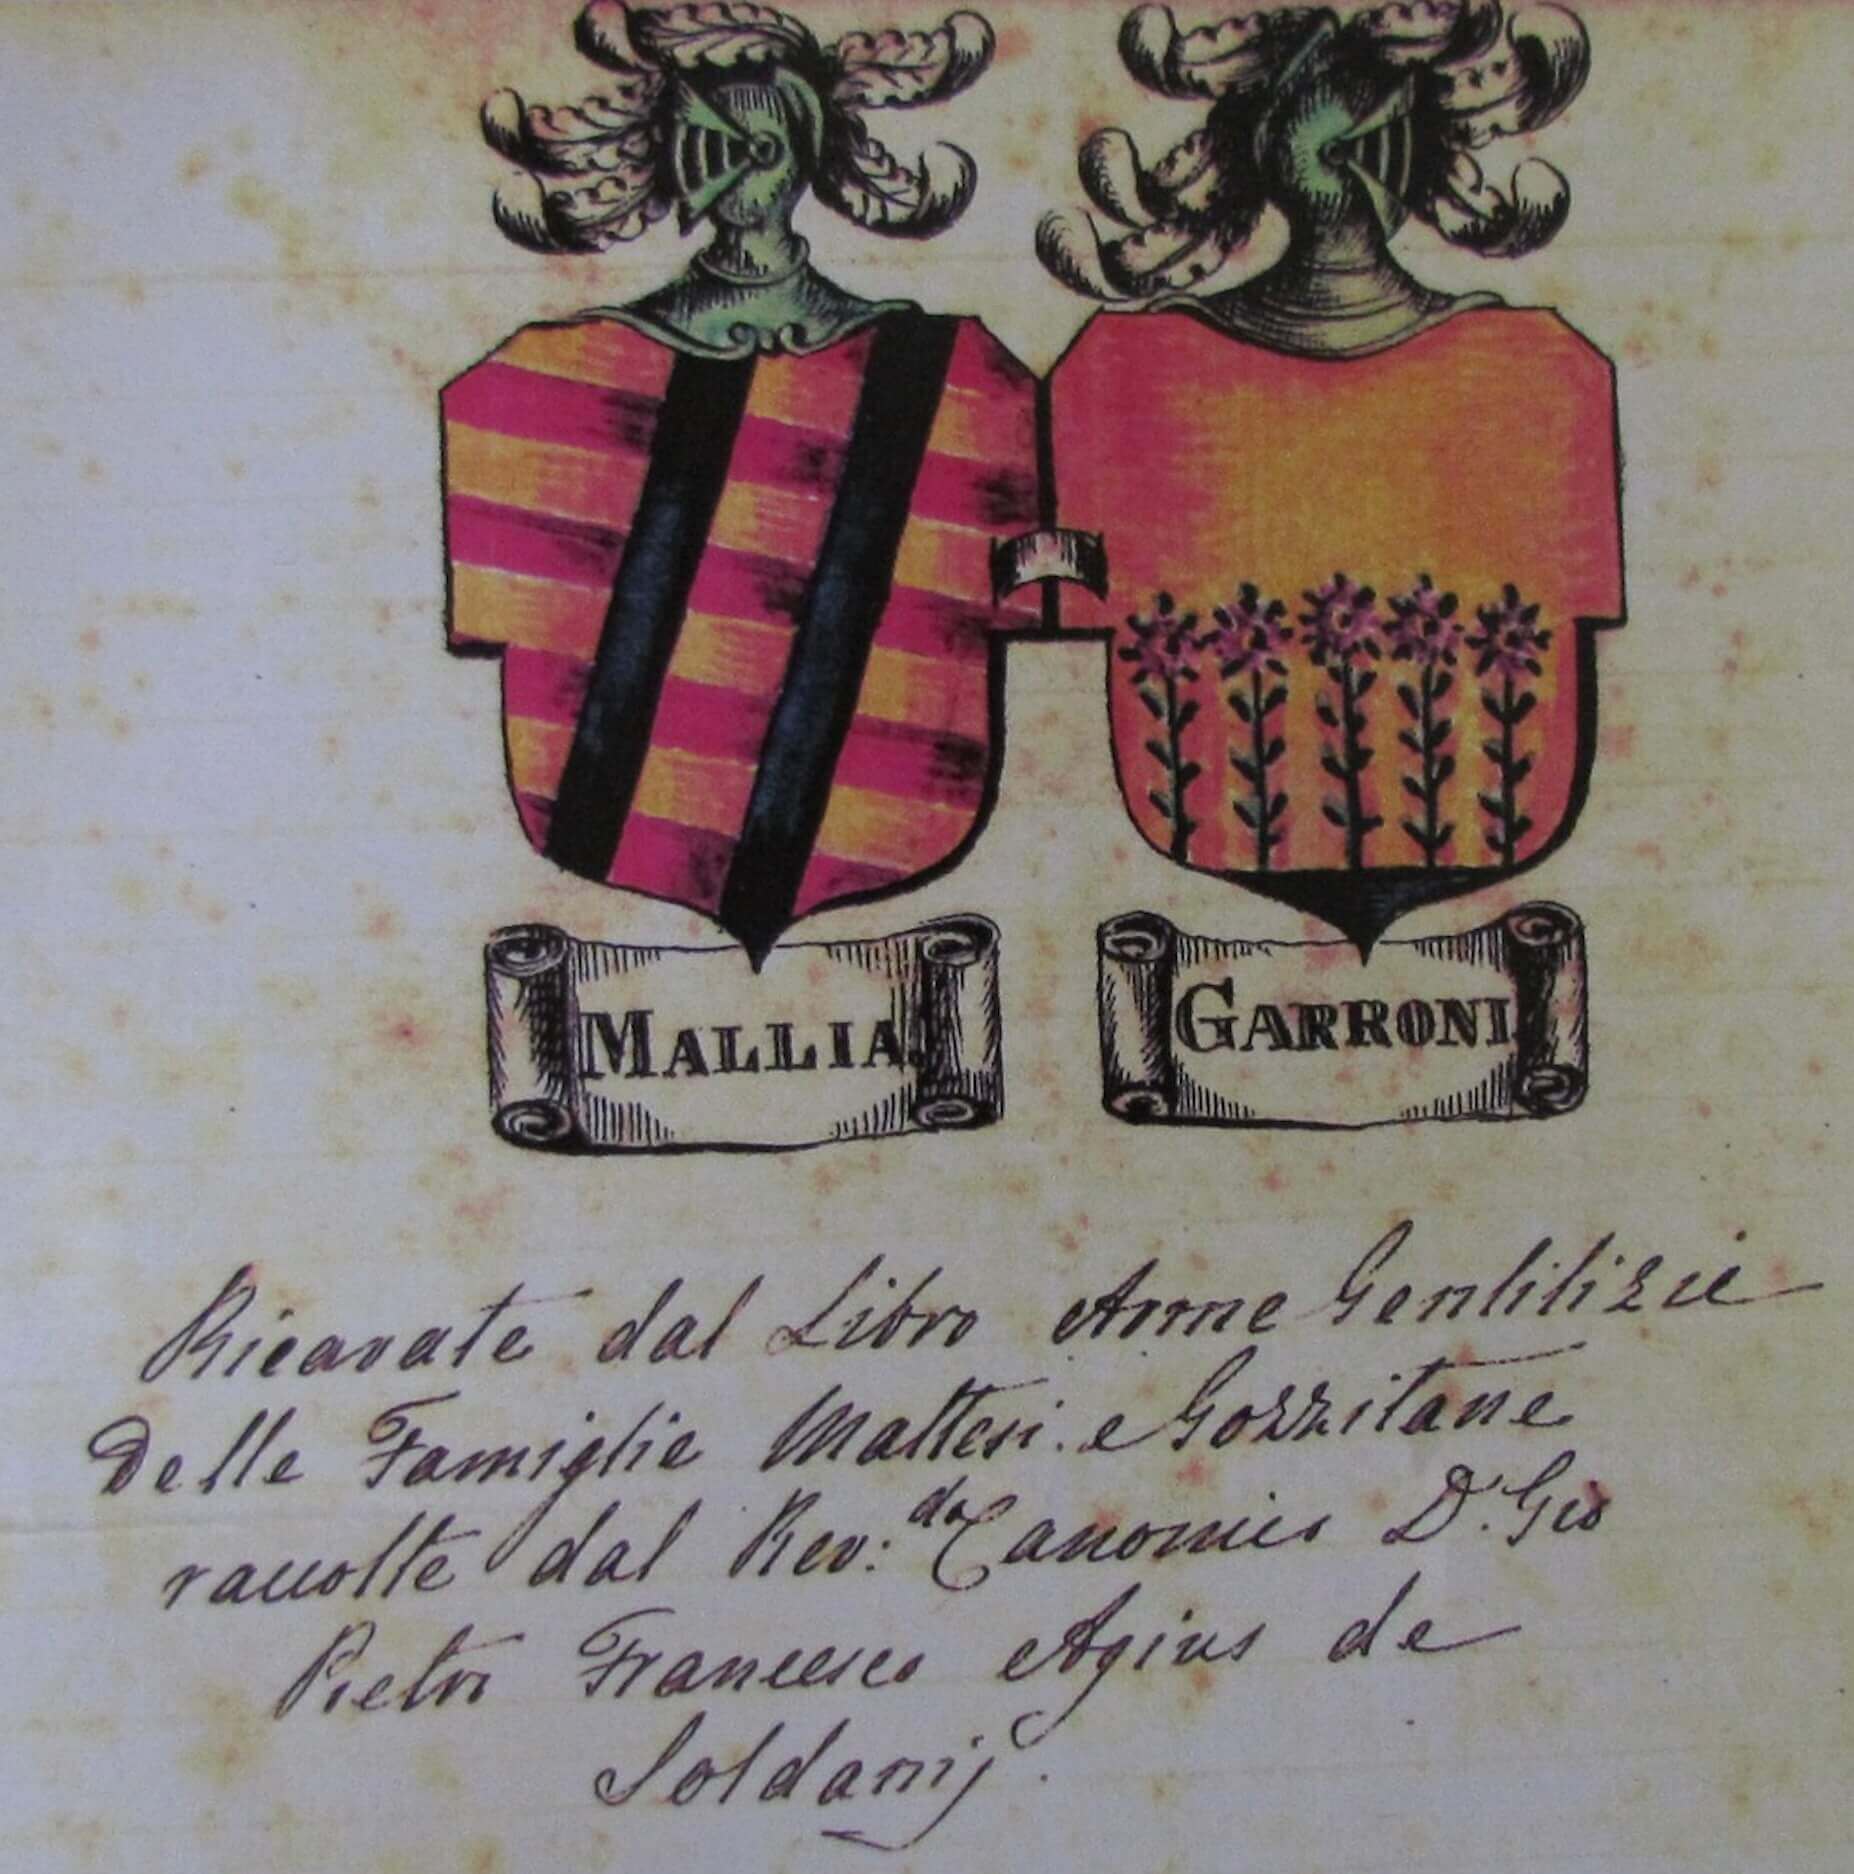 MALLIA
GARRONI
Ricavate dal Libro Arme Gentilizie
Delle Famiglie Maltesi. e Gozzitane
raccolte dal Rev:do Canonico D. Gio
Pietro Francesco Agius de
Soldanij.